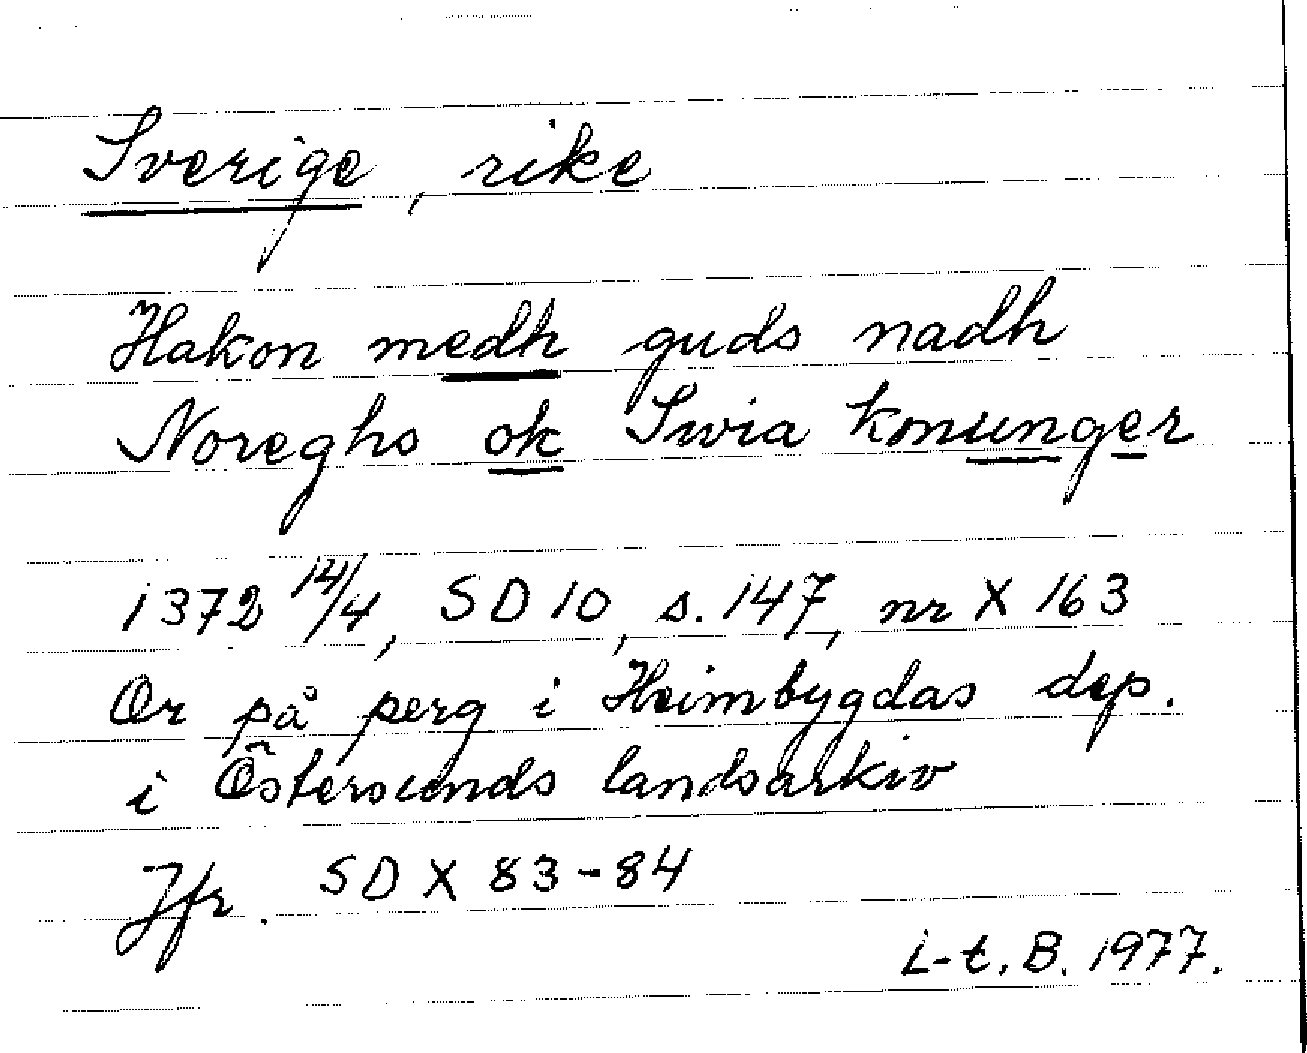 Sverige, rike
Hakon medh guds nadh
Noreghs ok Swia konunger
1372 14/4, SD 10, s. 147, nr X 163
Or på perg i Heimbygdas dep.
i Östersunds landsarkiv
Jfr. SD X 83-84
L-t. B. 1977.